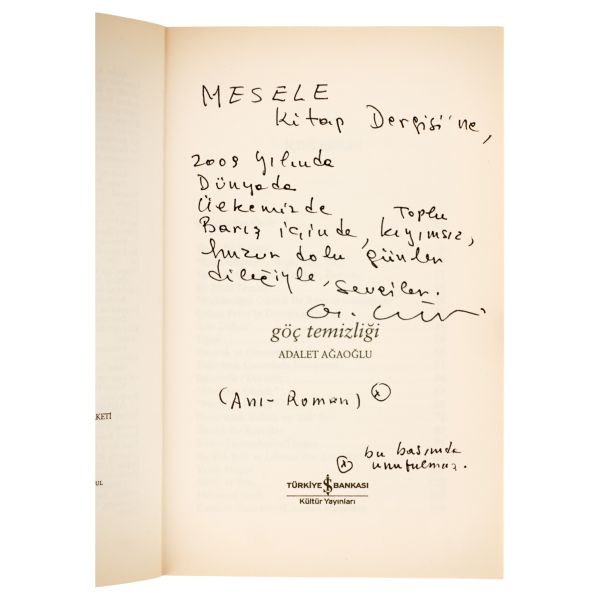 MESELE
Kitap Dergisi'ne,
2009 yılında
Dünyada
Ülkemizde
Toplu
Barış içinde, kıyımsız,
huzur dolu günler
dileğiyle, sevgiler.
göç temizliği
ADALET AĞAOĞLU
(Anı-Roman) x
x bu basımda
unutulmaz.
LKETİ
UL
TÜRKİYE İŞ BANKASI
Kültür Yayınları